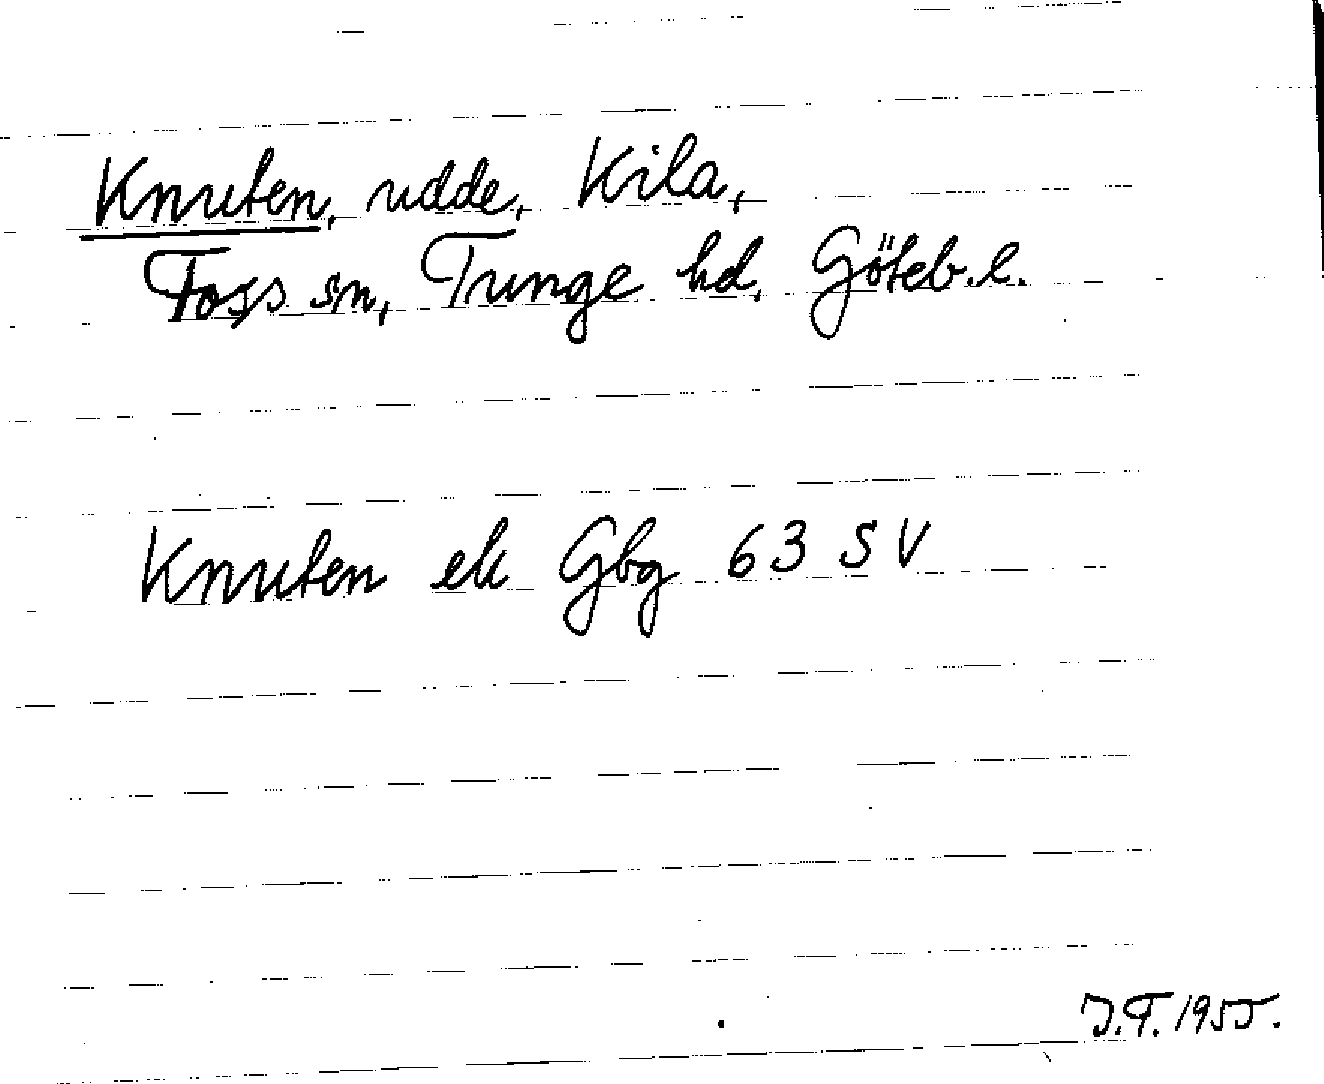 Knuten, udde, Kila,
Foss sn, Tunge hd, Göteb. l.
Knuten ek Gbg 63 SV
J.T. 1955.